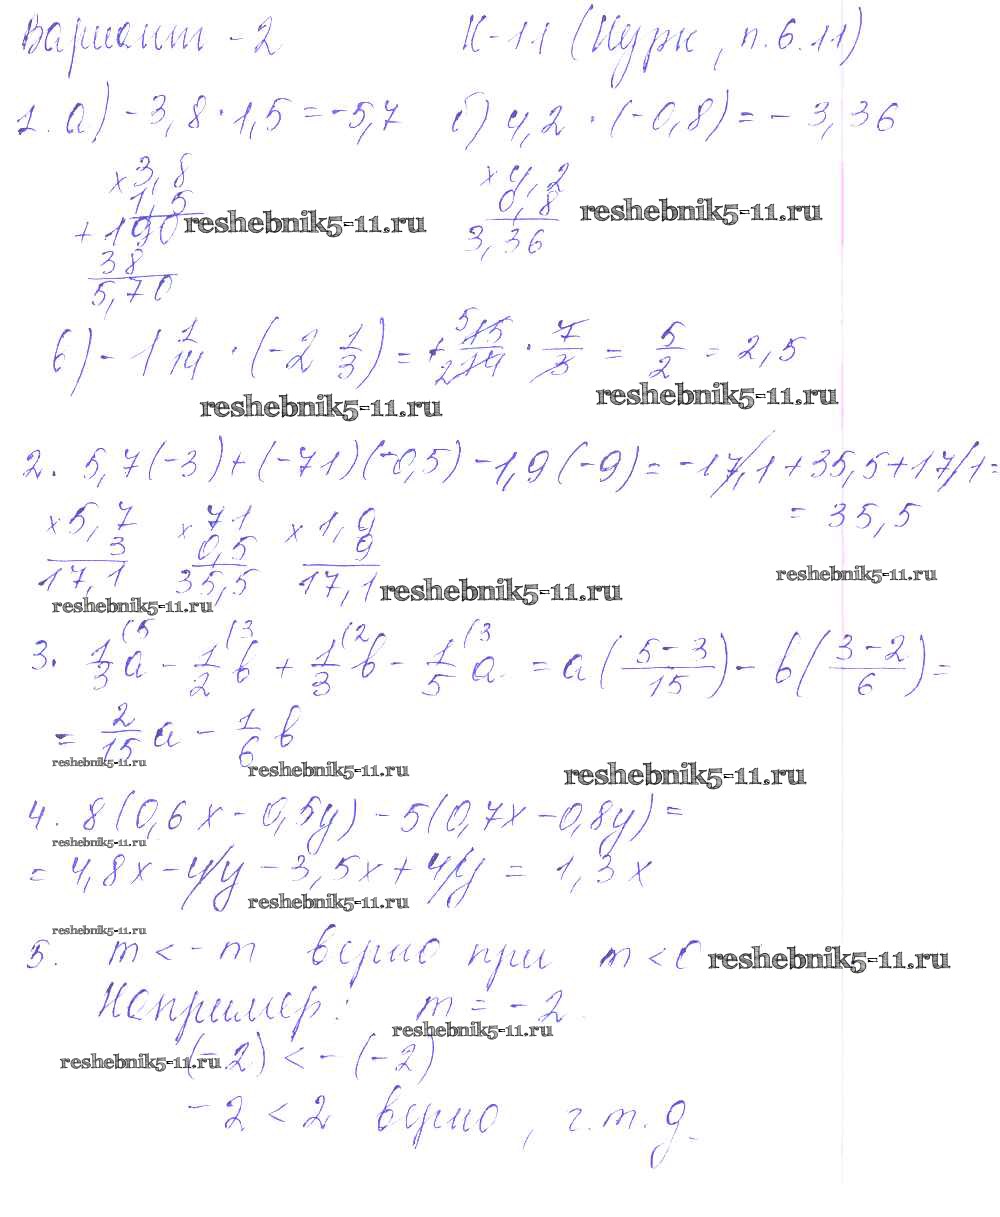 Вариант - 2 К-11 (Нурк, п.6.11)
1. а) -3,8 · 1,5 = -5,7 б) 4,2 · (-0,8) = - 3,36
× 3,8 × 4,2
1,5 0,8
+ 190 3,36
reshebnik5-11.ru reshebnik5-11.ru
38
5,70
в) - 1 1/14 · (-2 1/3) = + 15/14 · 7/3 = 5/2 = 2,5
5 2
reshebnik5-11.ru reshebnik5-11.ru
2. 5,7(-3) + (-71)(-0,5) - 1,9(-9) = -17,1 + 35,5 + 17,1 =
= 35,5
× 5,7 × 71 × 1,9
3 0,5 9
17,1 35,5 17,1
reshebnik5-11.ru reshebnik5-11.ru reshebnik5-11.ru
3. 1/3 (5 a - 1/2 (3 b + 1/3 (2 b - 1/5 (3 a = a ( 5-3/15 ) - b ( 3-2/6 ) =
= 2/15 a - 1/6 b
reshebnik5-11.ru reshebnik5-11.ru reshebnik5-11.ru
4. 8(0,6x - 0,5y) - 5(0,7x - 0,8y) =
reshebnik5-11.ru
= 4,8x - 4y - 3,5x + 4y = 1,3x
reshebnik5-11.ru
reshebnik5-11.ru
5. m < - m верно при m < 0 reshebnik5-11.ru
Например: m = - 2
reshebnik5-11.ru
reshebnik5-11.ru (-2) < - (-2)
- 2 < 2 верно, ч.т.д.